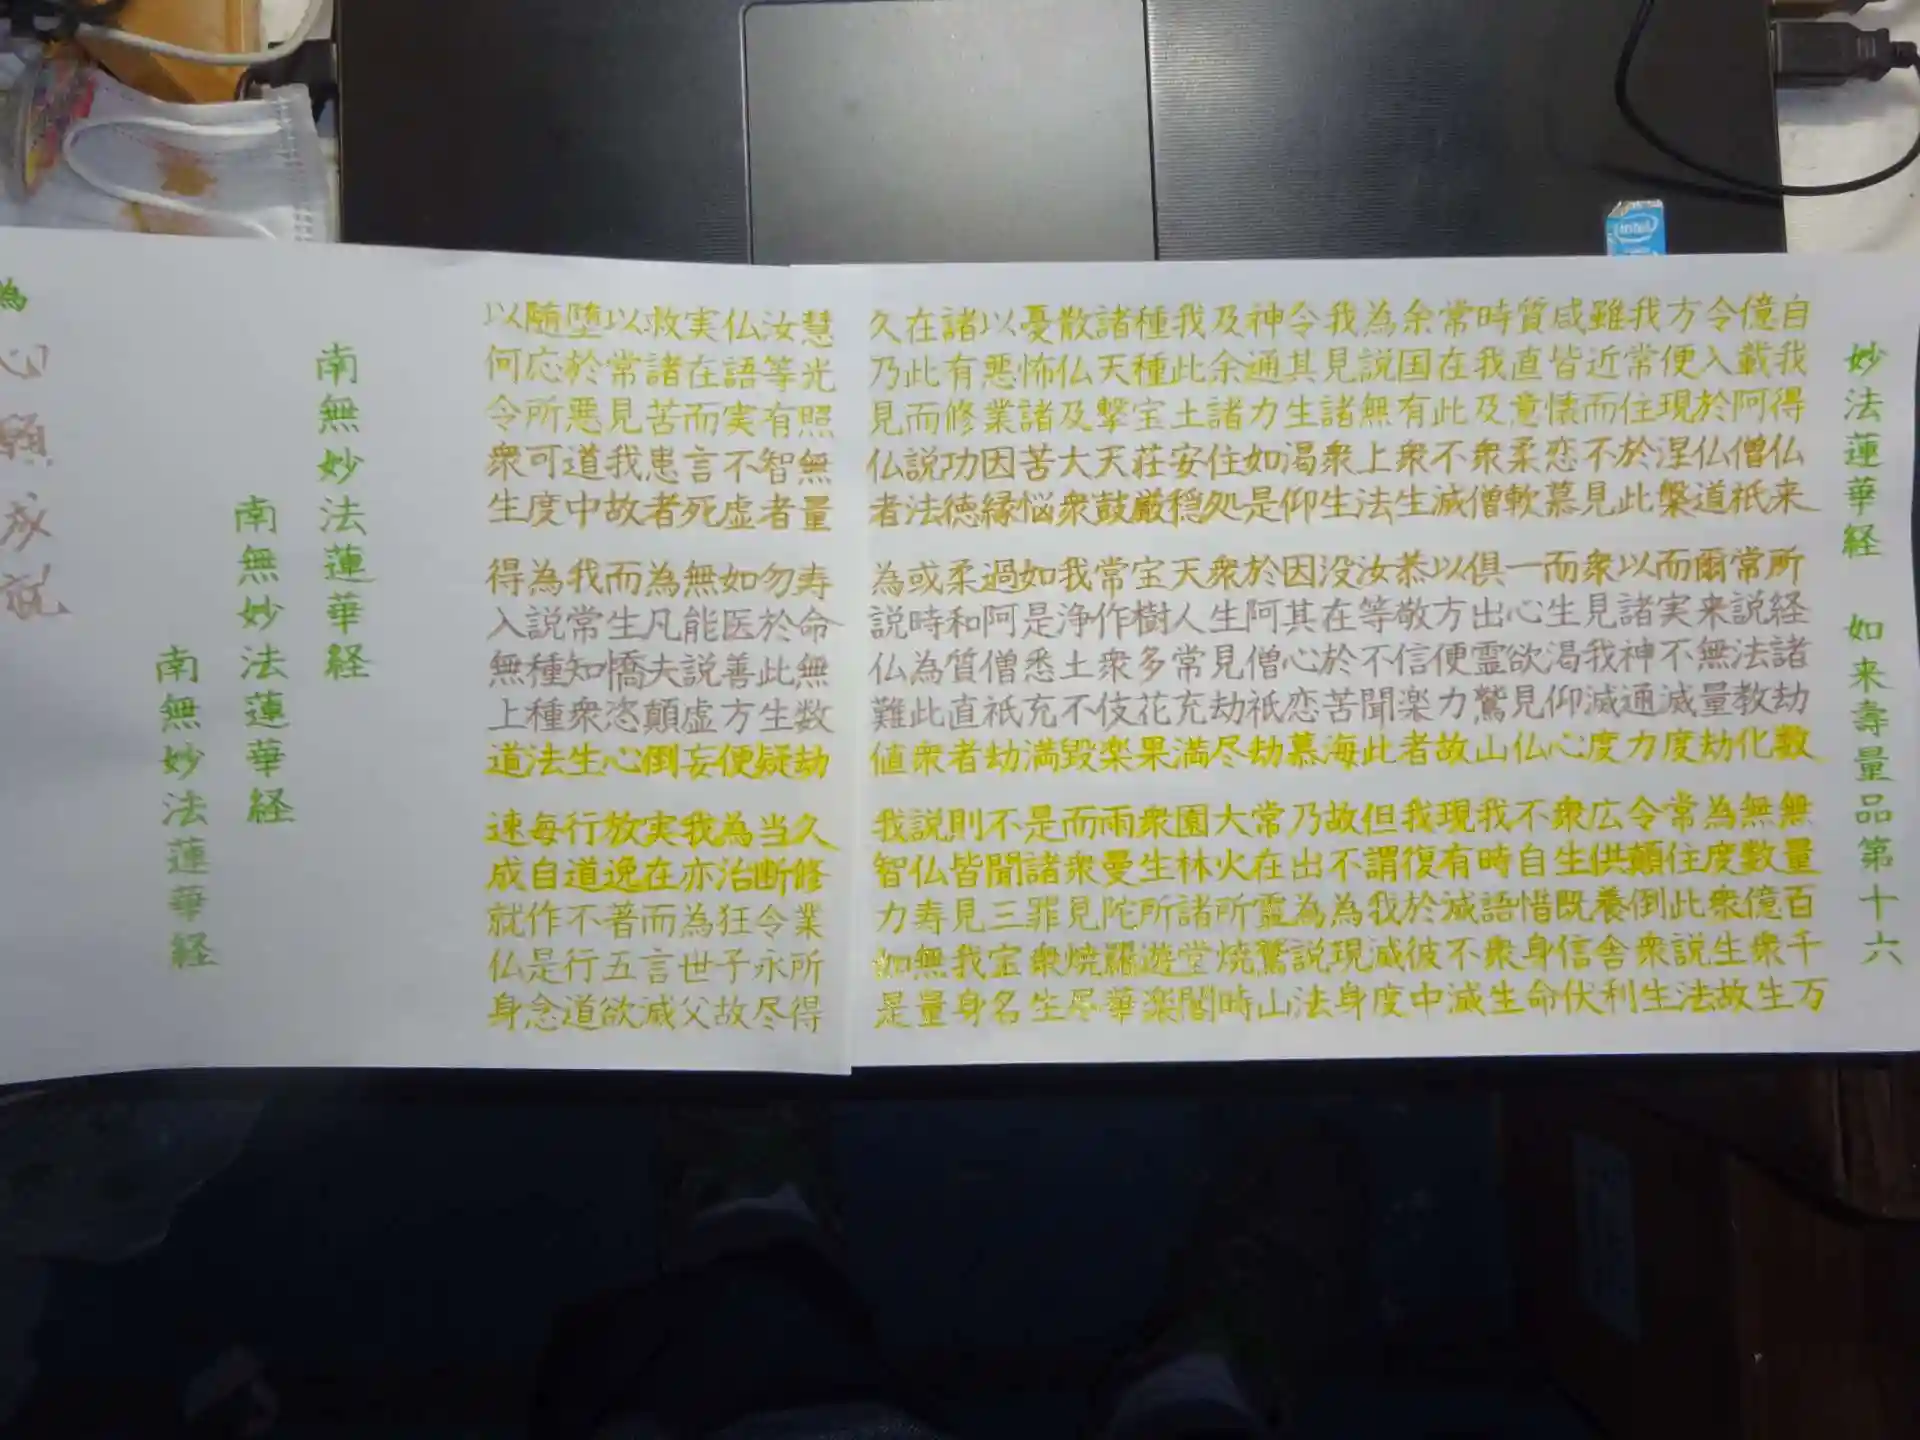 妙法蓮華経 如来壽量品第十六
自我得仏来 所経諸劫数 無量百千万
億載阿僧祇 常説法教化 無数億衆生
令入於仏道 爾来無量劫 為度衆生故
方便現涅槃 而実不滅度 常住此説法
我常住於此 以諸神通力 令顛倒衆生
雖近而不見 衆見我滅度 広供養舎利
咸皆懐恋慕 而生渇仰心 衆生既信伏
質直意柔軟 一心欲見仏 不自惜身命
時我及衆僧 倶出霊鷲山 我時語衆生
常在此不滅 以方便力故 現有滅不滅
余国有衆生 恭敬信楽者 我復於彼中
為説無上法 汝等不聞此 但謂我滅度
我見諸衆生 没在於苦海 故不為現身
令其生渇仰 因其心恋慕 乃出為説法
神通力如是 於阿僧祇劫 常在霊鷲山
及余諸住処 衆生見劫尽 大火所焼時
我此土安穏 天人常充満 園林諸堂閣
種種宝荘厳 宝樹多花果 衆生所遊楽
諸天撃天鼓 常作衆伎楽 雨曼陀羅華
散仏及大衆 我浄土不毀 而衆見焼尽
憂怖諸苦悩 如是悉充満 是諸罪衆生
以悪業因縁 過阿僧祇劫 不聞三宝名
諸有修功徳 柔和質直者 則皆見我身
在此而説法 或時為此衆 説仏寿無量
久乃見仏者 為説仏難値 我智力如是
慧光照無量 寿命無数劫 久修業所得
汝等有智者 勿於此生疑 当断令永尽
仏語実不虚 如医善方便 為治狂子故
実在而言死 無能説虚妄 我亦為世父
救諸苦患者 為凡夫顛倒 実在而言滅
以常見我故 而生憍恣心 放逸著五欲
堕於悪道中 我常知衆生 行道不行道
随応所可度 為説種種法 毎自作是念
以何令衆生 得入無上道 速成就仏身
南無妙法蓮華経
南無妙法蓮華経
南無妙法蓮華経
為
心願成就
intel